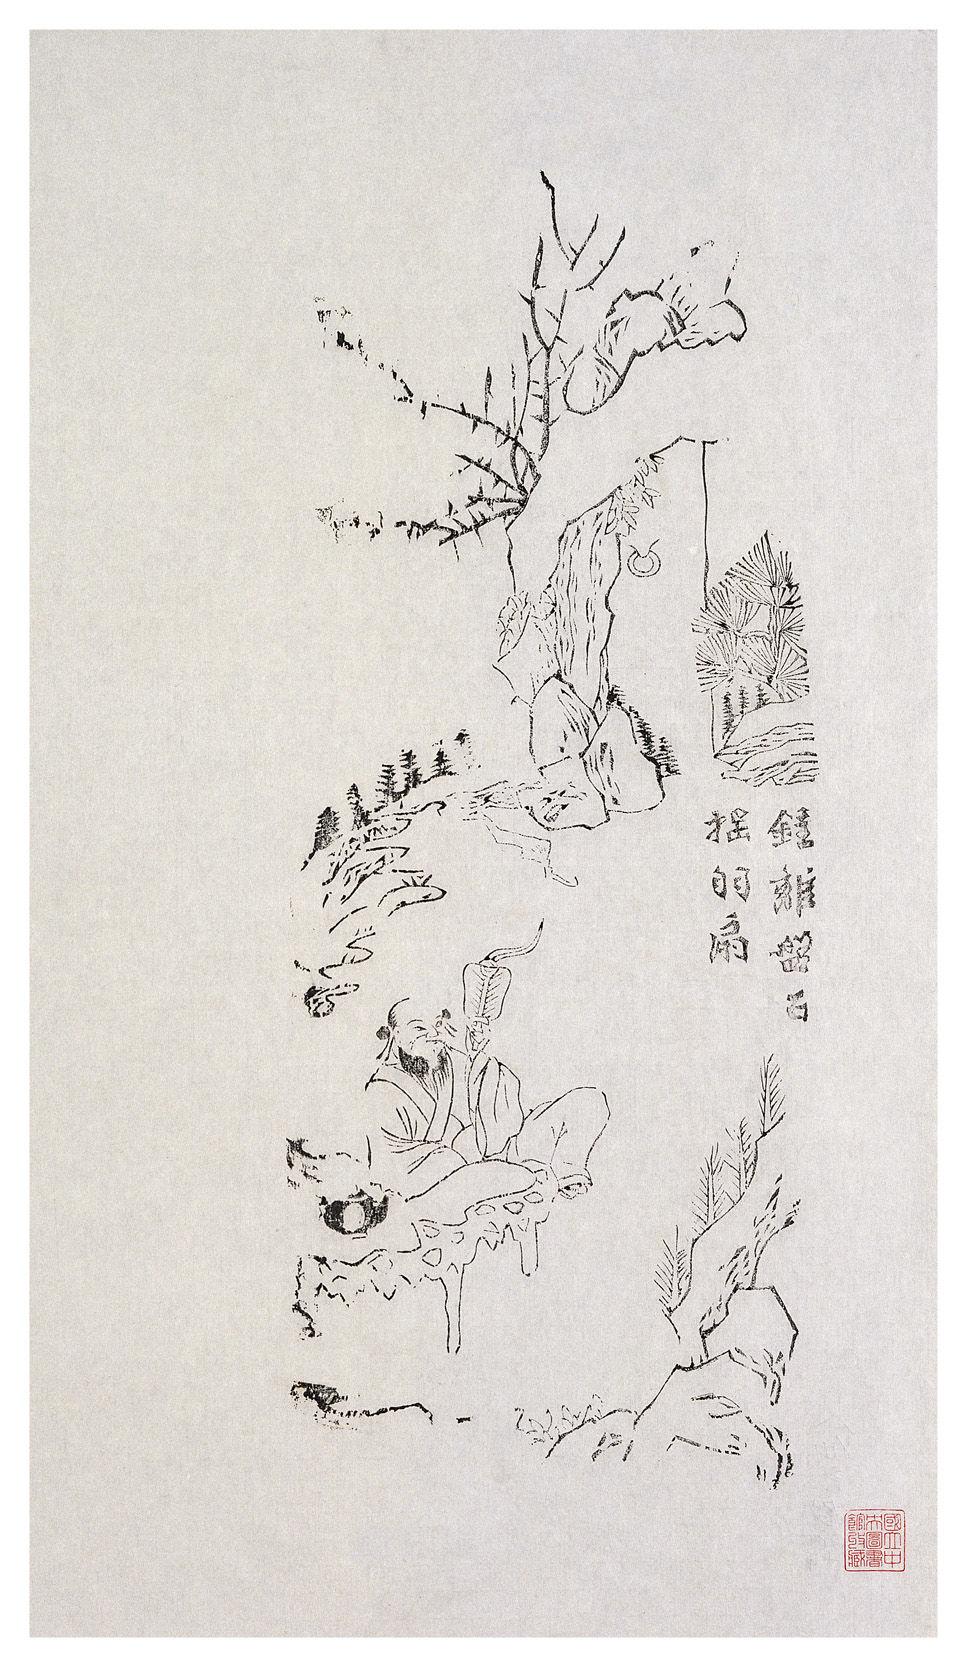 鍾離盤石
搖羽扇
國立中
央圖書
館收藏